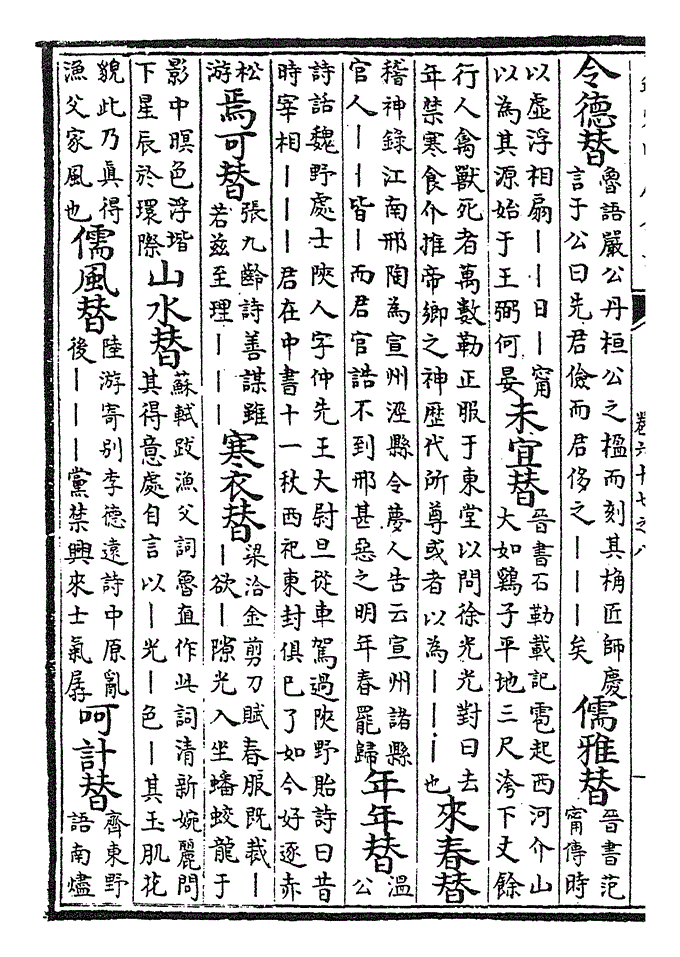 令德替魯語嚴公丹桓公之楹而刻其桷匠師慶言于公曰先君儉而君侈之｜｜｜矣儒雅替晉書范甯傳時
以虛浮相扇｜｜日｜甯以為其源始于王弼何晏未宜替晉書石勒載記雹起西河介山大如鷄子平地三尺洿下丈餘
行人禽獸死者萬數勒正服于東堂以問徐光光對曰去年禁寒食介推帝鄉之神歷代所尊或者以為｜｜｜也來春替
稽神錄江南邢陶為宣州涇縣令夢人告云宣州諸縣官人｜｜皆｜而君官誥不到邢甚惡之明年春罷歸年年替溫公
詩話魏野處士陝人字仲先王大尉旦從車駕過陝野貽詩曰昔時宰相｜｜｜君在中書十一秋西祀東封俱已了如今好逐赤
松游焉可替張九齡詩善謀雖若兹至理｜｜｜寒衣替梁洽金剪刀賦春服既裁｜｜欲｜隙光入坐蟠蛟龍于
影中暝色浮堦下星辰於環際山水替蘇軾跋漁父詞魯直作此詞清新婉麗問其得意處自言以｜光｜色｜其玉肌花
貌此乃眞得漁父家風也儒風替陸游寄別李德遠詩中原亂後｜｜｜黨禁興來士氣孱呵計替齊東野語南燼
卷六十七之八